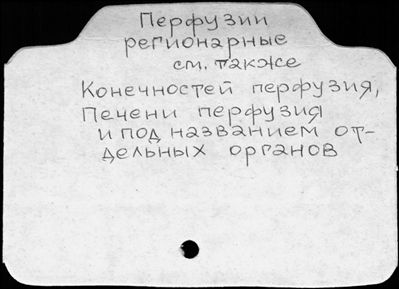 Перфузии
регионарные
см. также
Конечностей перфузия,
Печени перфузия
и под названием от-
дельных органов